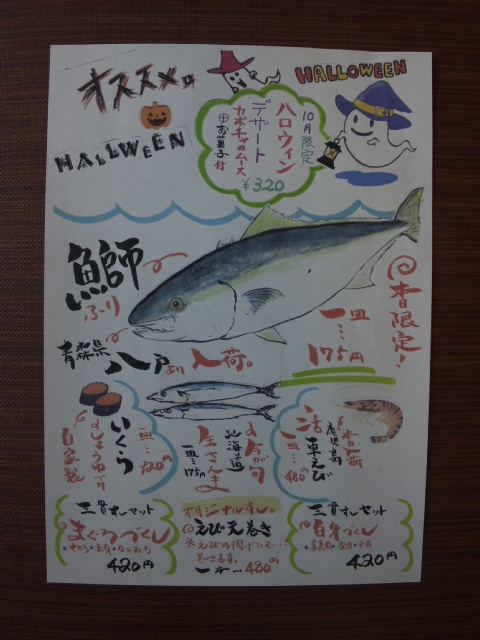 オススメ
HALLWEEN
HALLOWEEN
10月限定
ハロウィン
デザート
カボチャのムース
お菓子付
¥320
鰤
ぶり
青森県八戸より入荷。
本日限定!
一皿…175円
いくら
しょうゆづけ
自家製
今が旬
北海道
生さんま
一皿…175円
本日入荷
鹿児島
活車えび
一皿…480円
三貫すしセット
まぐろづくし
420円
オリジナルすし。
えび天巻き
一本…480円
三貫すしセット
白身づくし
420円